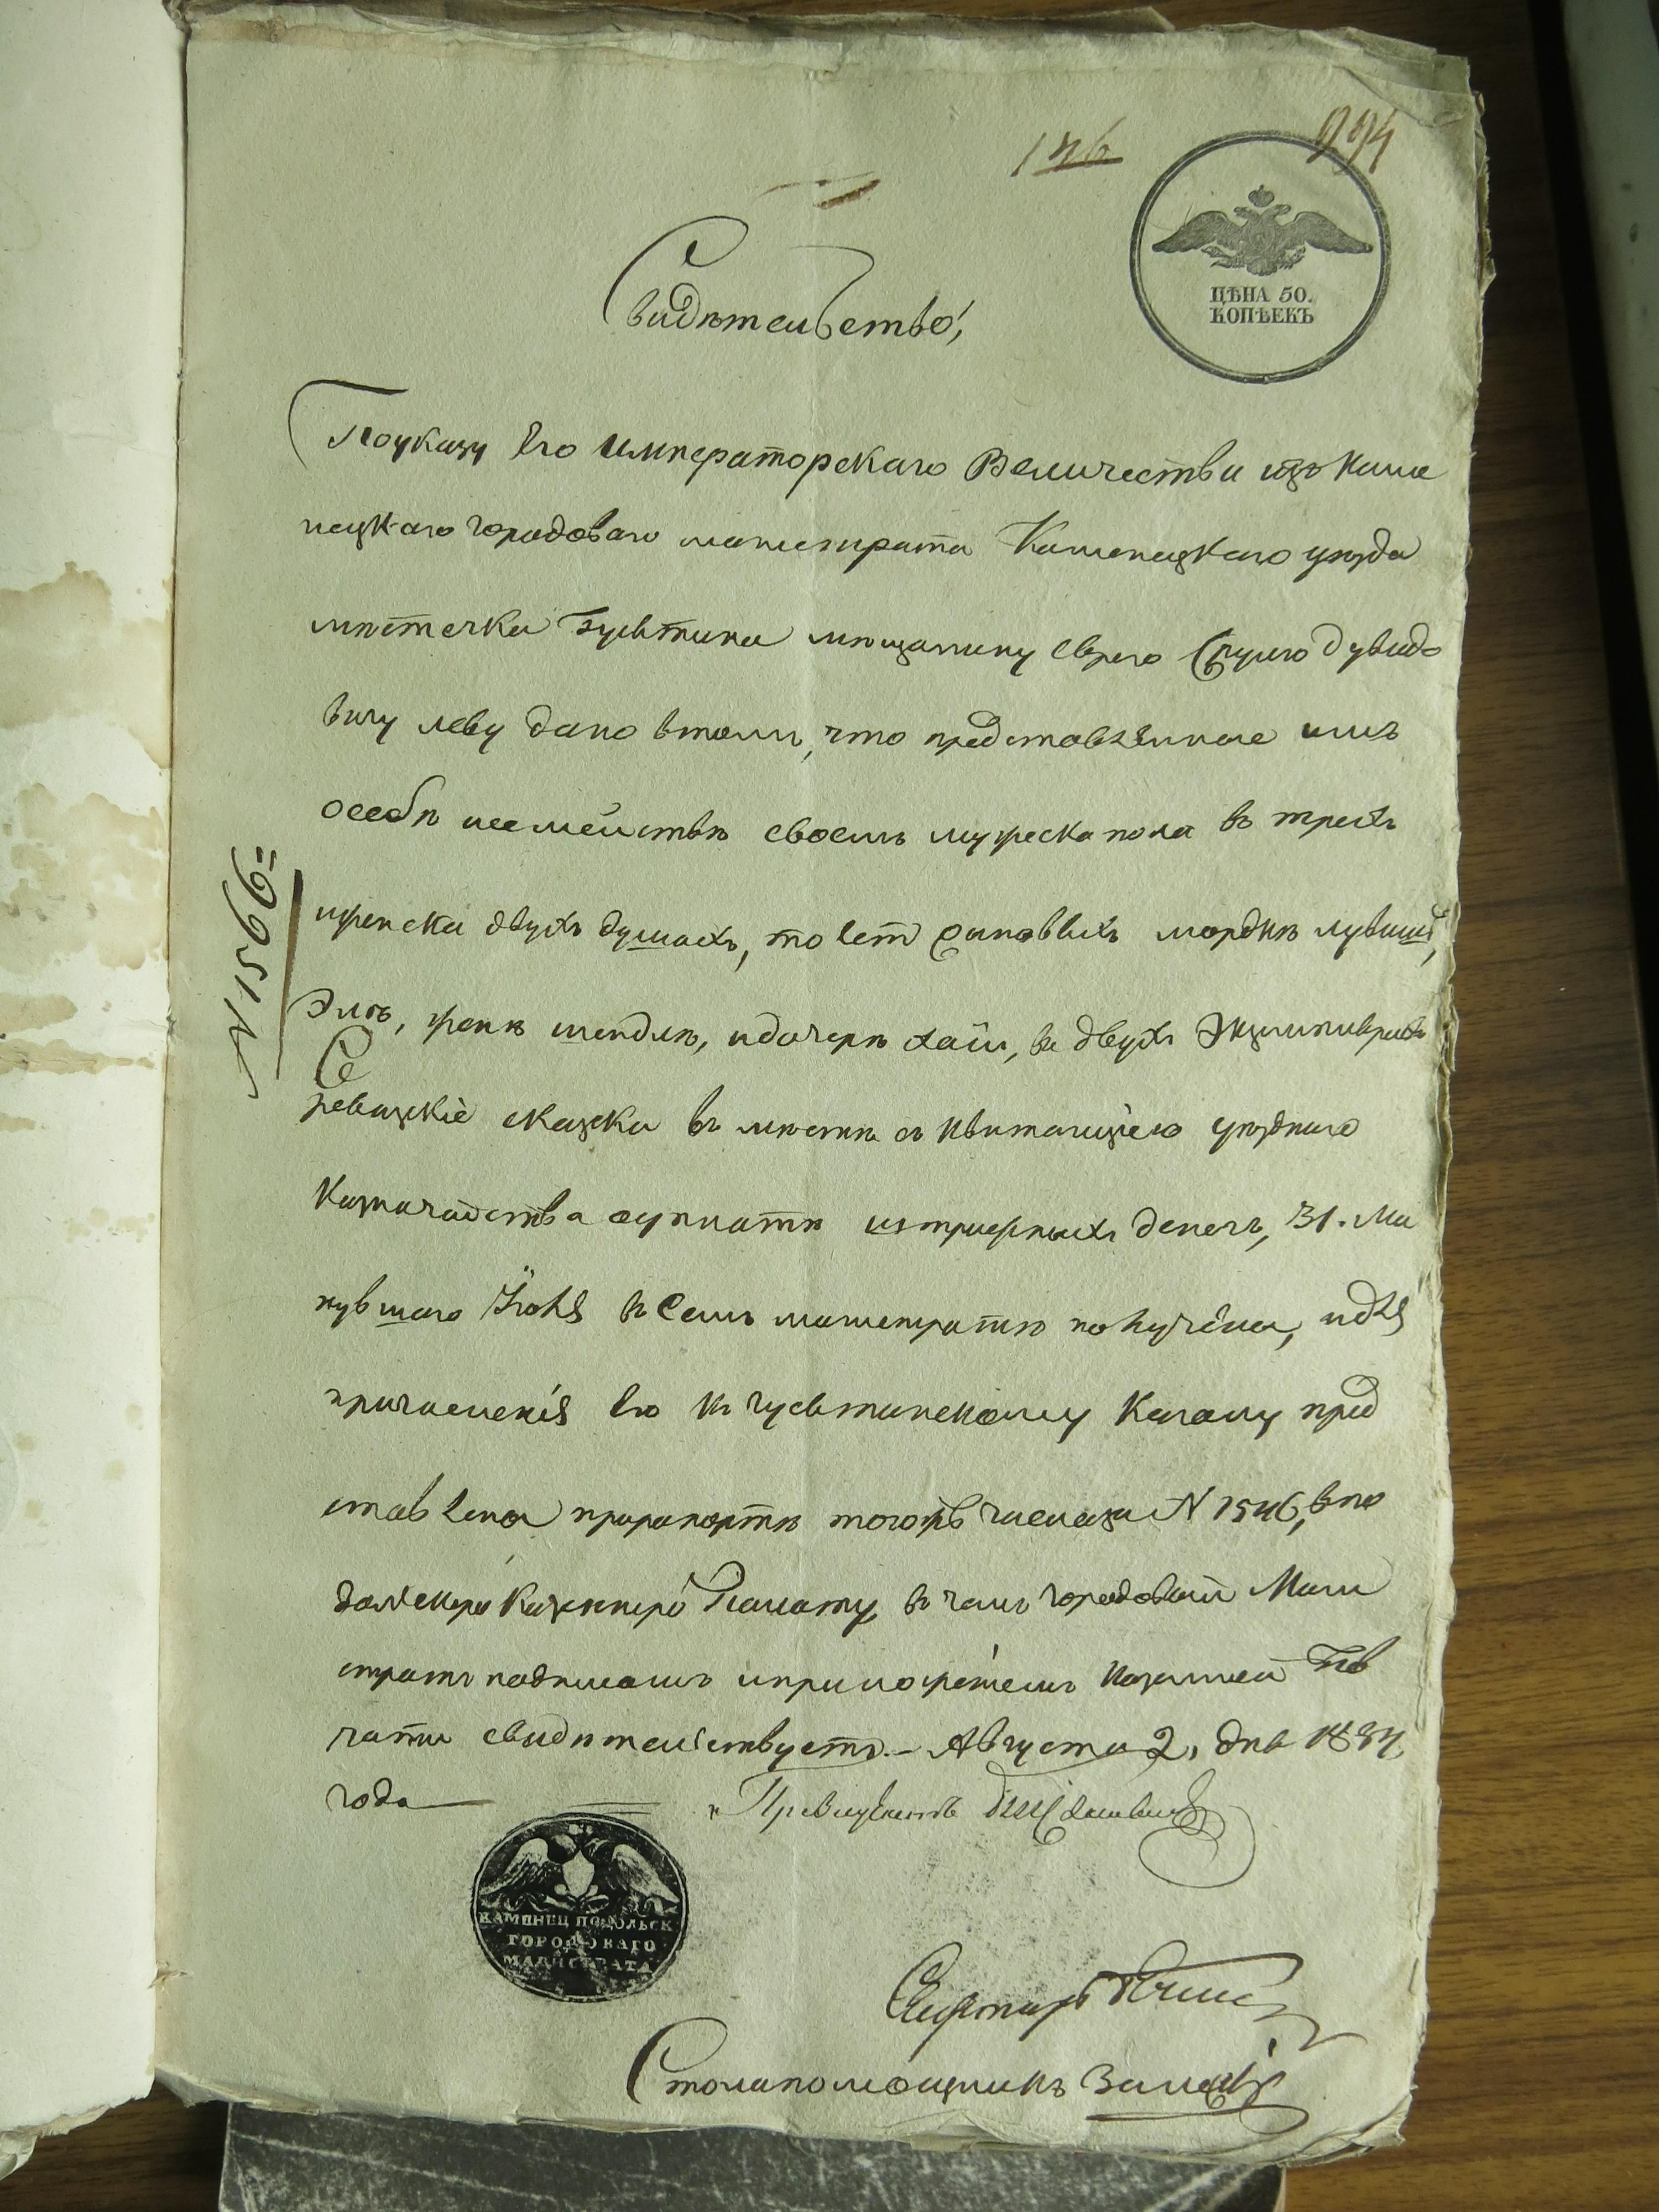 146
ЦѢНА 50.
КОПѢЕКЪ
Свидѣтельство,
По указу Его Императорскаго Величества изъ Каме
нецкаго городоваго магистрата Каменецкаго уѣзда
мѣстечка Гусятина мещанину еврею Срулю Дувидо
вичу Леву дано втомъ, что представленные имъ
о себѣ и семействѣ своемъ мужеска пола въ трехъ
и женска двухъ душахъ, то есть сыновьяхъ Мордкѣ
женѣ Шендлѣ, и дочерѣ Хаи, въ двухъ Экземплярахъ
ревизскіе сказки въ мѣстѣ съ квитанціею уѣзднаго
Казначейства о уплатѣ денегъ, 31. Ми
нувшаго Іюля въ семъ магистратѣ получены, и для
причисленія его къ Гусятинскому Кагалу пред
ставлены при рапортѣ тогожъ числа за N 1546, в по
дольскую Казенную Палату, в чемъ городовый Маги
стратъ подписомъ и приложеніемъ казенной Пе
чати свидѣтельствуетъ. - Августа 2, дня 1834
года
N 1566
КАМЕНЕЦ ПОДОЛЬСК
ГОРОДОВАГО
МАГИСТРАТА
Столапомощникъ